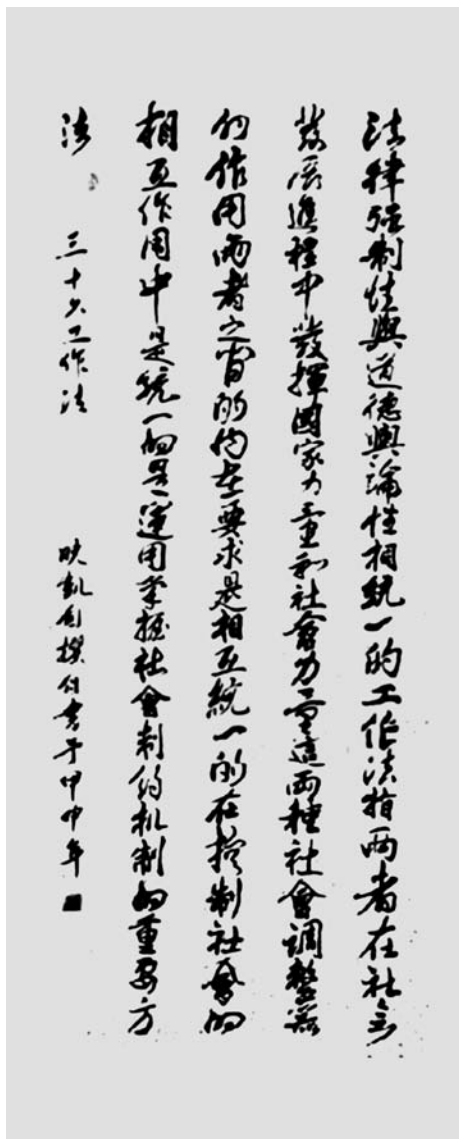 法律强制性與道德輿論性相統一的工作法指兩者在社會
發展進程中發揮國家力量和社會力量這两種社會調整器
的作用两者之間的内在要求是相互統一的在控制社會的
相互作用中是統一的是運用掌握社會制約机制的重要方
法 三十六工作法 映凱自撰自書于甲申年